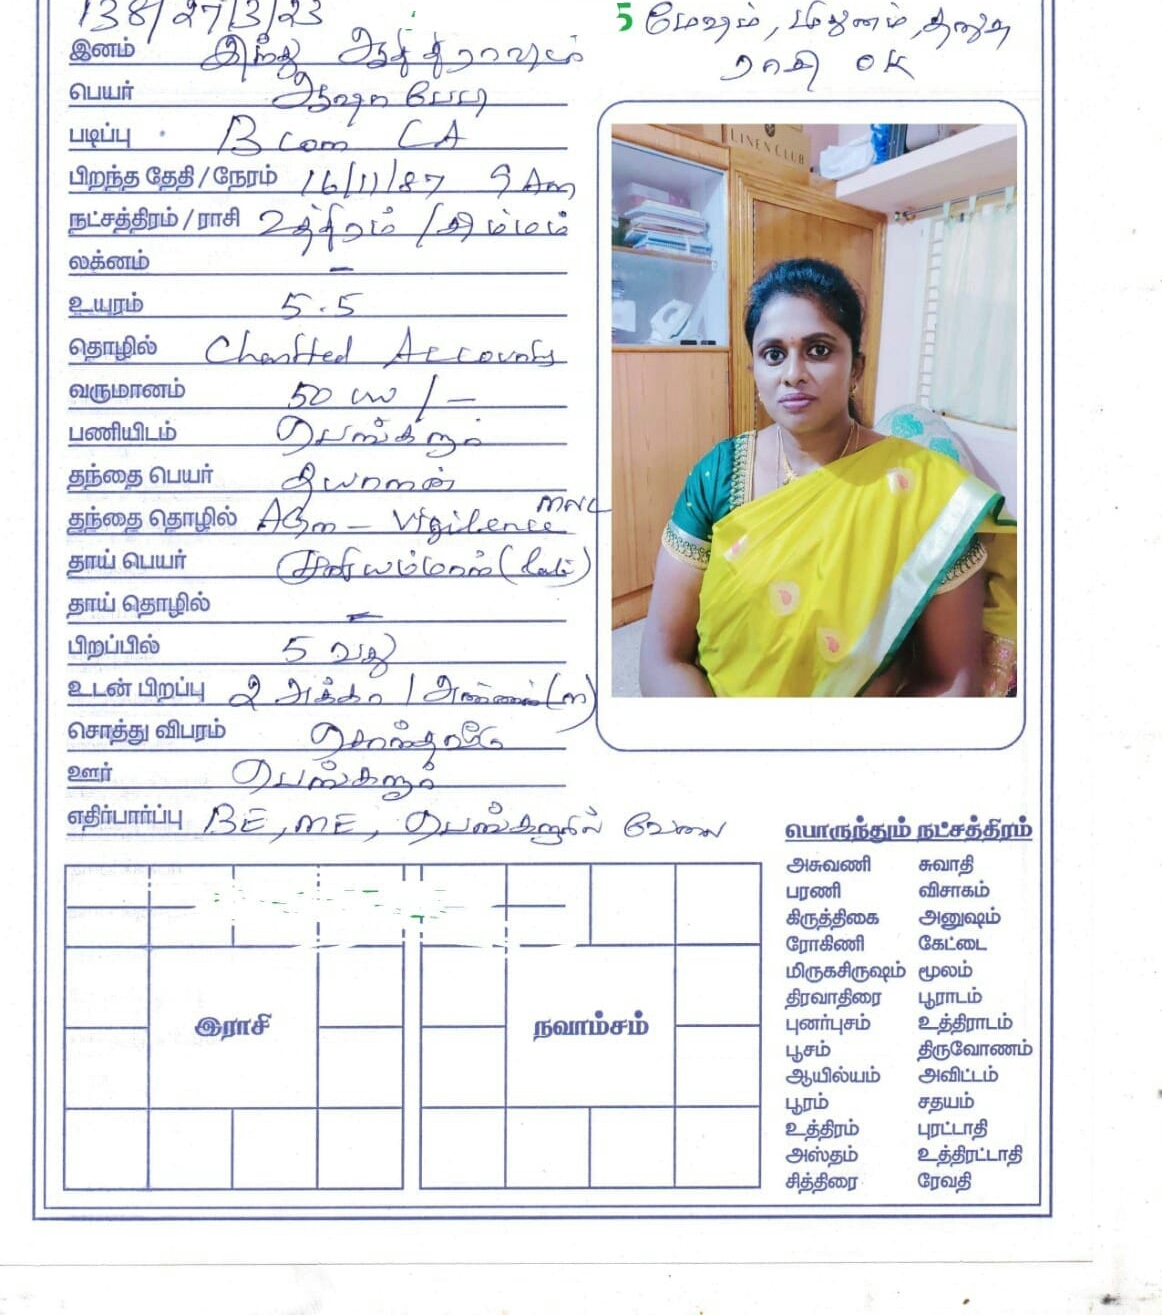 138/27/3/23
5 மேஷம், மிதுனம், தனுசு
ராசி OK
இனம் இந்து ஆதி திராவிடம்
பெயர்
படிப்பு B com CA
பிறந்த தேதி / நேரம் 16/11/87 9 Am
நட்சத்திரம் / ராசி உத்திரம் / சிம்மம்
லக்னம் -
உயரம் 5.5
தொழில் Chartted Accounts
வருமானம் 50 /-
பணியிடம் பெங்களூர்
தந்தை பெயர்
தந்தை தொழில் AGm - Vigilence
தாய் பெயர் (late)
தாய் தொழில் -
பிறப்பில் 5 வது
உடன் பிறப்பு 2 அக்கா / அண்ணன் (m)
சொத்து விபரம் சொந்த வீடு
ஊர் பெங்களூர்
எதிர்பார்ப்பு BE, ME, பெங்களூரில் வேலை
LINEN CLUB
பொருந்தும் நட்சத்திரம்
அசுவணி சுவாதி
பரணி விசாகம்
கிருத்திகை அனுஷம்
ரோகிணி கேட்டை
மிருகசிருஷம் மூலம்
திரவாதிரை பூராடம்
புனர்புசம் உத்திராடம்
பூசம் திருவோணம்
ஆயில்யம் அவிட்டம்
பூரம் சதயம்
உத்திரம் புரட்டாதி
அஸ்தம் உத்திரட்டாதி
சித்திரை ரேவதி
இராசி
நவாம்சம்